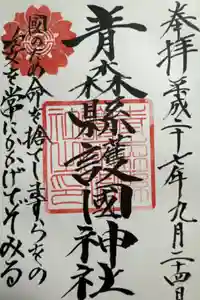 奉拝 平成二十七年九月二十四日
青森縣護國神社
國のため命を捨てしますらをの
姿を常にかかげてぞみる